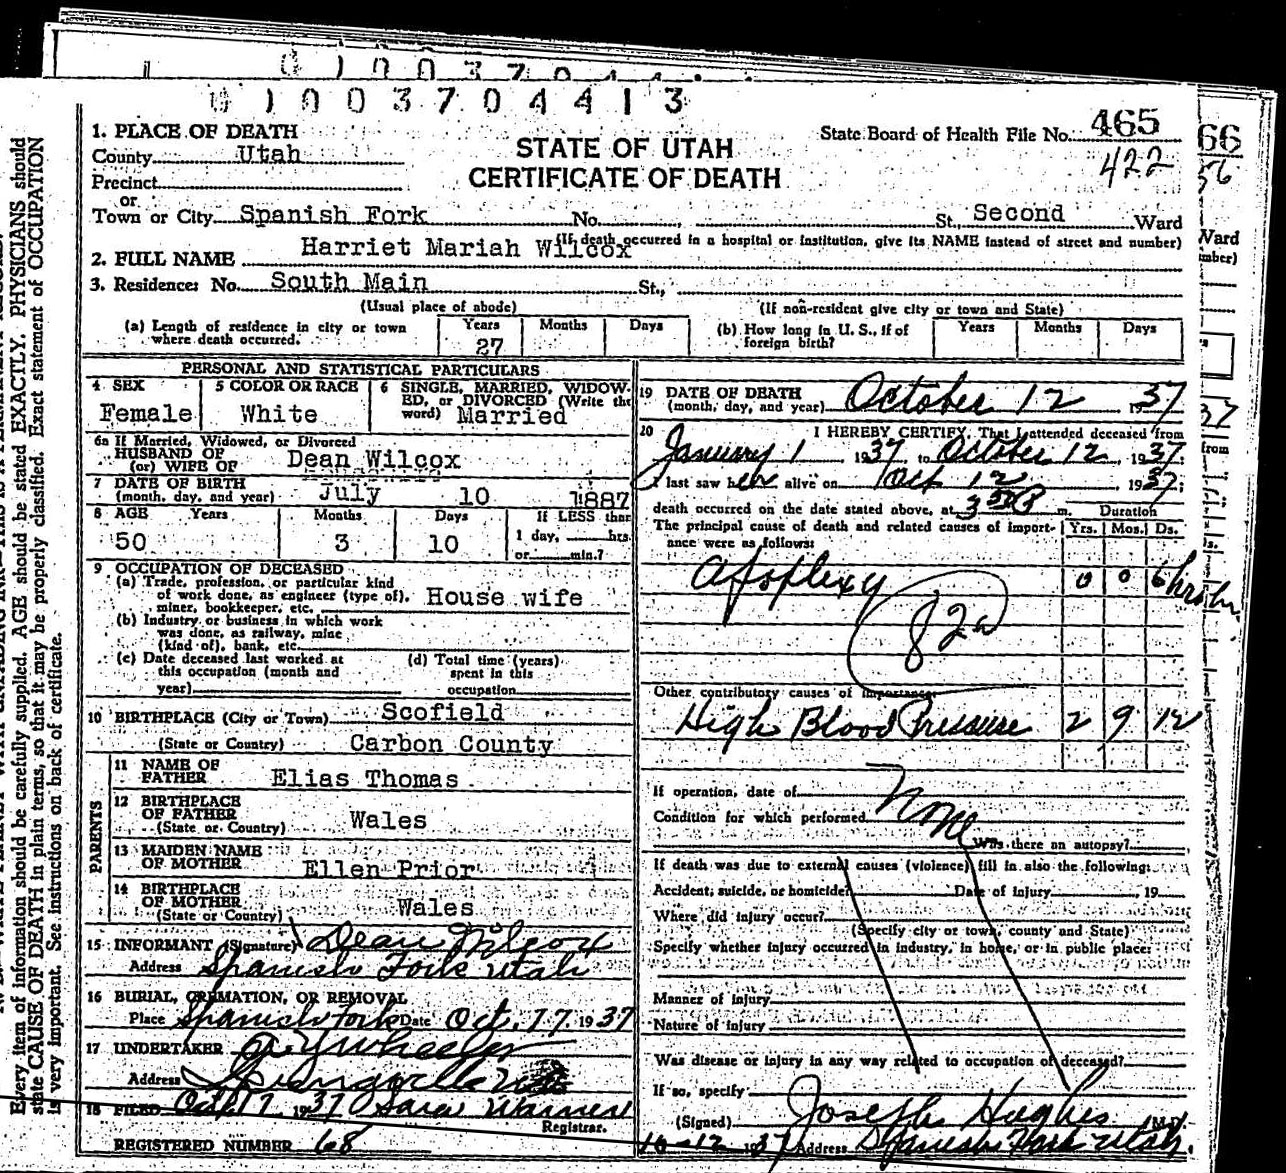 0 1 0 0 3 7 0 4 4 1 3
State Board of Health File No. 465
422
STATE OF UTAH
CERTIFICATE OF DEATH
1. PLACE OF DEATH
County Utah
Precinct
or
Town or City Spanish Fork No. St. Second Ward
(If death occurred in a hospital or institution, give its NAME instead of street and number)
2. FULL NAME Harriet Mariah Wilcox
3. Residence: No. South Main St.,
(Usual place of abode) (If non-resident give city or town and State)
(a) Length of residence in city or town where death occurred. Years 27 Months Days
(b) How long in U. S., if of foreign birth? Years Months Days
PERSONAL AND STATISTICAL PARTICULARS
4 SEX Female
5 COLOR OR RACE White
6 SINGLE, MARRIED, WIDOWED, or DIVORCED (Write the word) Married
6a If Married, Widowed, or Divorced
HUSBAND OF
(or) WIFE OF Dean Wilcox
7 DATE OF BIRTH
(month, day, and year) July 10 1887
8 AGE Years Months Days If LESS than
50 3 10 1 day, hrs.
or min.?
9 OCCUPATION OF DECEASED
(a) Trade, profession, or particular kind
of work done, as engineer (type of),
miner, bookkeeper, etc. House wife
(b) Industry or business in which work
was done, as railway, mine
(kind of), bank, etc.
(c) Date deceased last worked at
this occupation (month and
year)
(d) Total time (years)
spent in this
occupation
10 BIRTHPLACE (City or Town) Scofield
(State or Country) Carbon County
PARENTS
11 NAME OF
FATHER Elias Thomas
12 BIRTHPLACE
OF FATHER
(State or Country) Wales
13 MAIDEN NAME
OF MOTHER Ellen Prior
14 BIRTHPLACE
OF MOTHER
(State or Country) Wales
15 INFORMANT (Signature) Dean Wilcox
Address Spanish Fork Utah
16 BURIAL, CREMATION, OR REMOVAL
Place Spanish Fork Date Oct. 17 1937
17 UNDERTAKER Wheeler
Address Springville
18 FILED Oct 17 1937 Sara Warner
Registrar.
REGISTERED NUMBER 68
19 DATE OF DEATH
(month, day, and year) October 12 1937
20 I HEREBY CERTIFY, That I attended deceased from
January 1 1937 to October 12, 1937;
I last saw her alive on Oct 12 1937;
death occurred on the date stated above, at m. Duration
The principal cause of death and related causes of importance were as follows: Yrs. Mos. Ds.
Apoplexy 0 0 6 hrs
82a
Other contributory causes of importance:
High Blood Pressure 2 9 12
If operation, date of
Condition for which performed None
Was there an autopsy?
If death was due to external causes (violence) fill in also the following:
Accident, suicide, or homicide? Date of injury 19
Where did injury occur?
(Specify city or town, county and State)
Specify whether injury occurred in industry, in home, or in public place:
Manner of injury
Nature of injury
Was disease or injury in any way related to occupation of deceased?
If so, specify
(Signed) Joseph Hughes M.D.
10-12 1937 Address Spanish Fork Utah
Every item of information should be carefully supplied. AGE should be stated EXACTLY. PHYSICIANS should
state CAUSE OF DEATH in plain terms, so that it may be properly classified. Exact statement of OCCUPATION
is very important. See instructions on back of certificate.
66
56
Ward
37
from